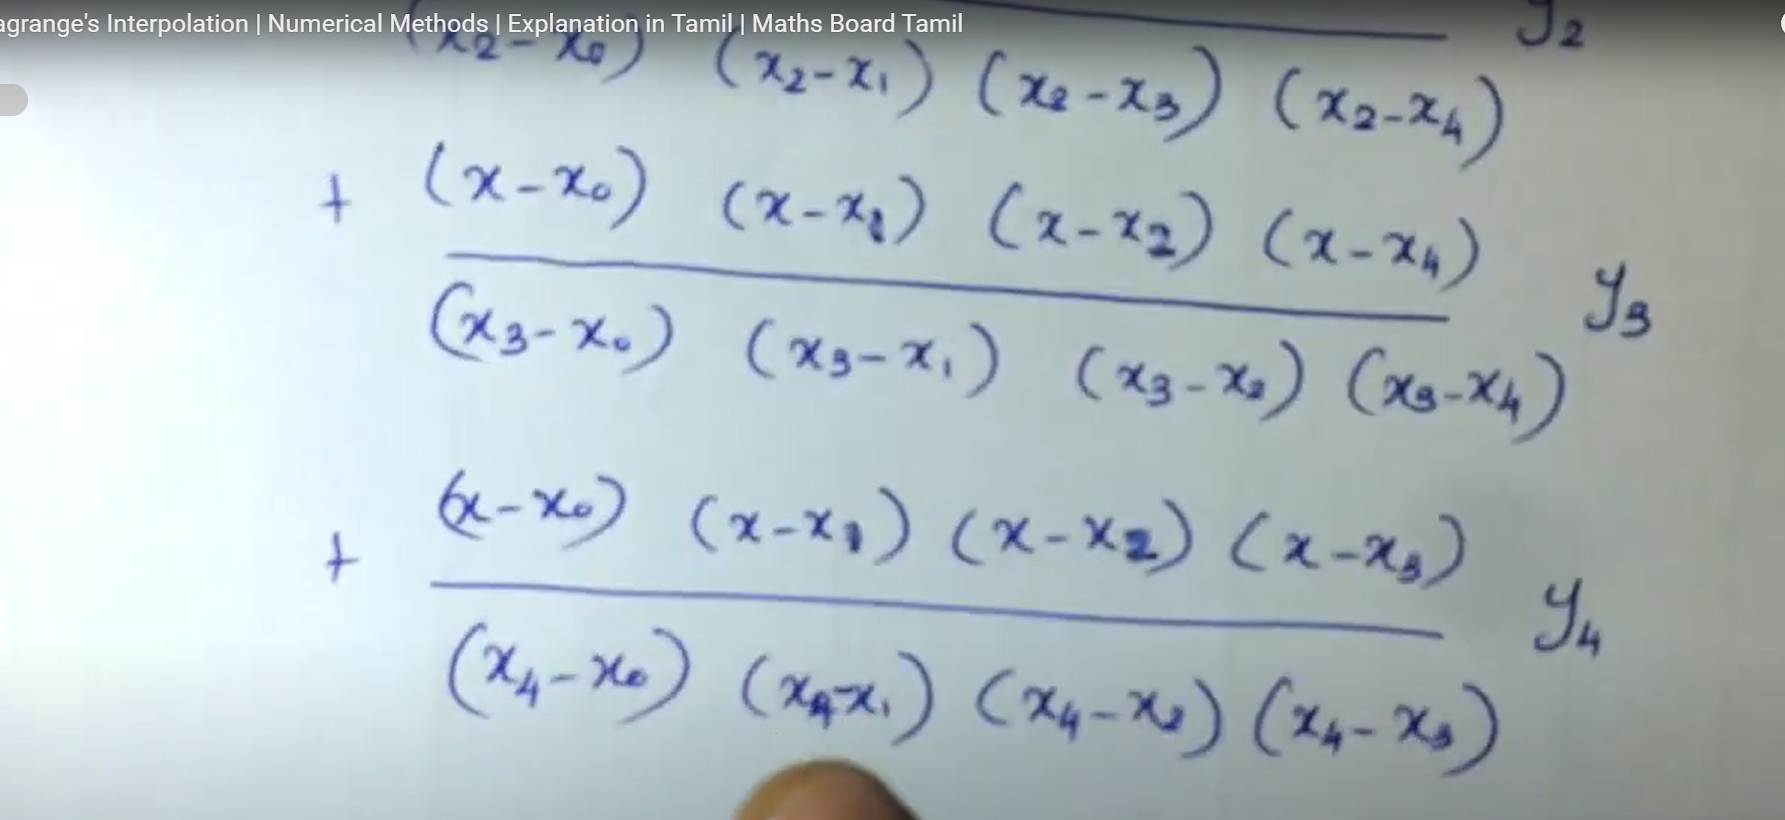 agrange's Interpolation | Numerical Methods | Explanation in Tamil | Maths Board Tamil
y₂
(x₂-x₀) (x₂-x₁) (x₂-x₃) (x₂-x₄)
+ (x-x₀) (x-x₁) (x-x₂) (x-x₄)
y₃
(x₃-x₀) (x₃-x₁) (x₃-x₂) (x₃-x₄)
+ (x-x₀) (x-x₁) (x-x₂) (x-x₃)
y₄
(x₄-x₀) (x₄-x₁) (x₄-x₂) (x₄-x₃)